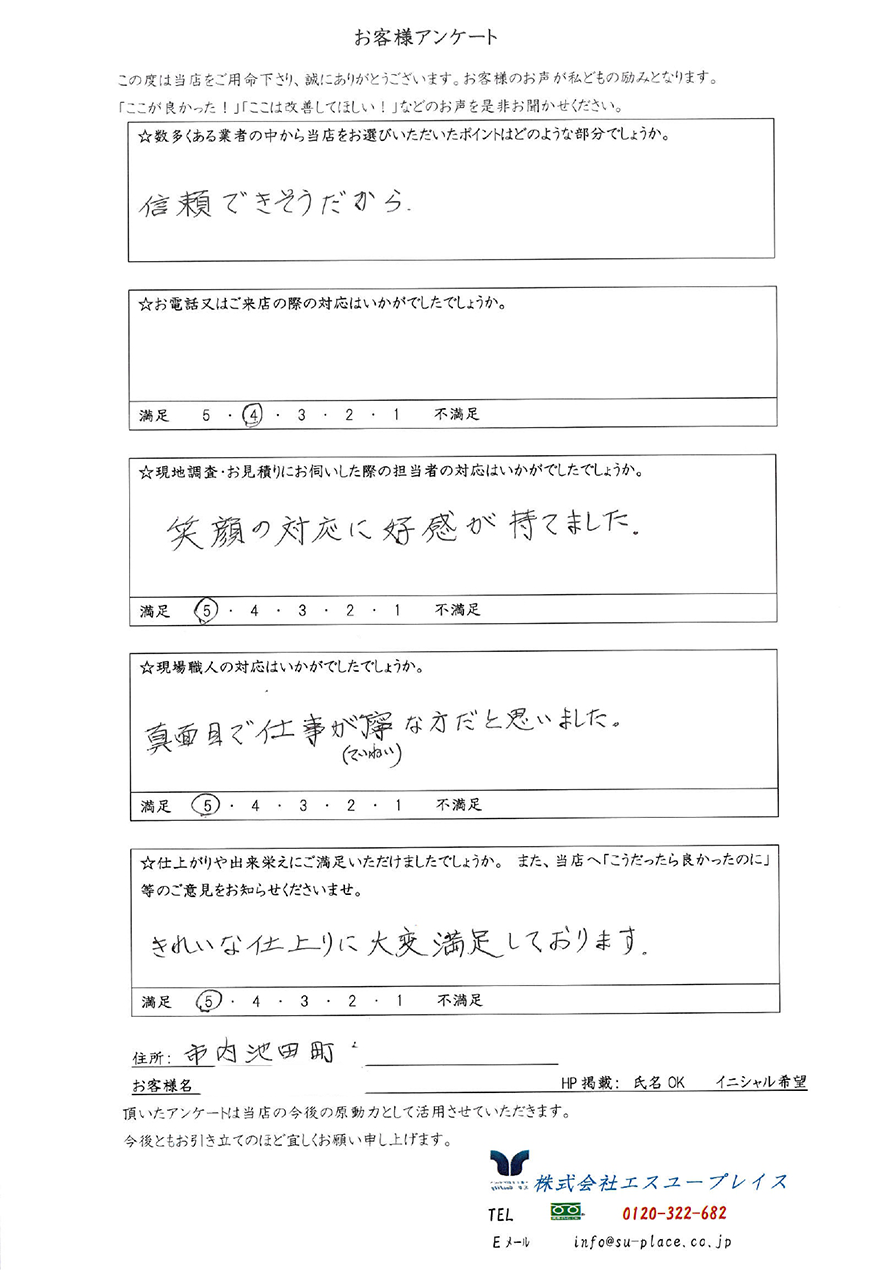 お客様アンケート
この度は当店をご用命下さり、誠にありがとうございます。お客様のお声が私どもの励みとなります。
「ここが良かった！」「ここは改善してほしい！」などのお声を是非お聞かせください。
☆数多くある業者の中から当店をお選びいただいたポイントはどのような部分でしょうか。
信頼できそうだから.
☆お電話又はご来店の際の対応はいかがでしたでしょうか。
満足 5 ・ 4 ・ 3 ・ 2 ・ 1 不満足
☆現地調査・お見積りにお伺いした際の担当者の対応はいかがでしたでしょうか。
笑顔の対応に好感が持てました.
満足 5 ・ 4 ・ 3 ・ 2 ・ 1 不満足
☆現場職人の対応はいかがでしたでしょうか。
真面目で仕事が寧な方だと思いました。
(ていねい)
満足 5 ・ 4 ・ 3 ・ 2 ・ 1 不満足
☆仕上がりや出来栄えにご満足いただけましたでしょうか。 また、当店へ「こうだったら良かったのに」
等のご意見をお知らせくださいませ。
きれいな仕上りに大変満足しております.
満足 5 ・ 4 ・ 3 ・ 2 ・ 1 不満足
住所: 市内池田町
お客様名 HP掲載: 氏名OK イニシャル希望
頂いたアンケートは当店の今後の原動力として活用させていただきます。
今後ともお引き立てのほど宜しくお願い申し上げます。
株式会社エスユープレイス
TEL 0120-322-682
Eメール info@su-place.co.jp